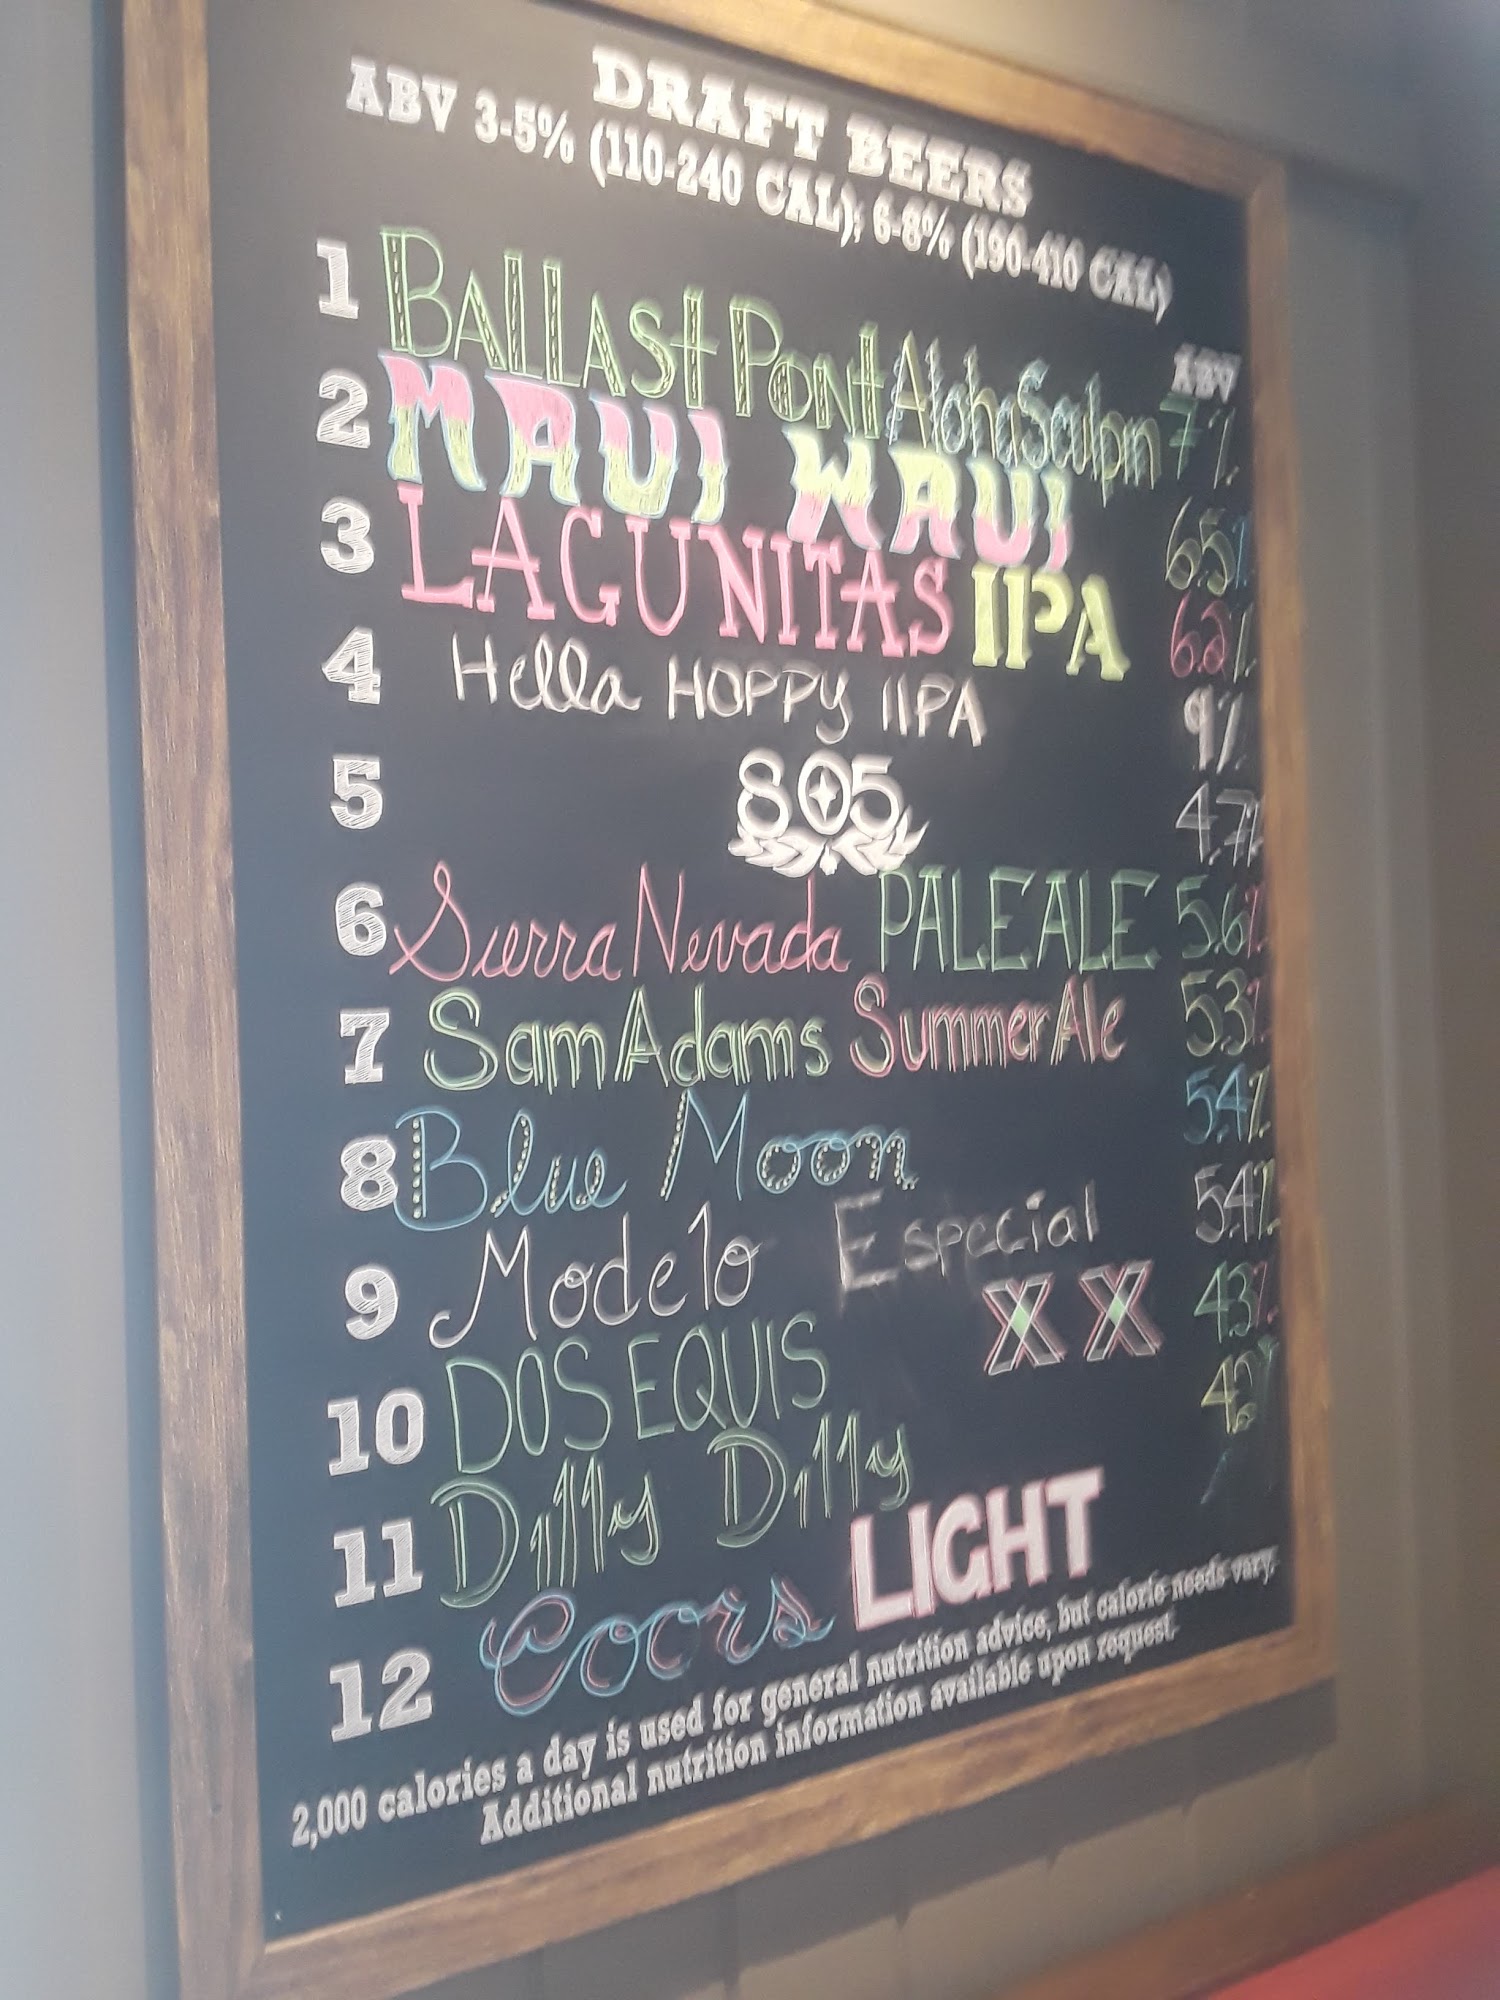 DRAFT BEERS
ABV 3-5% (110-240 CAL); 6-8% (190-410 CAL)
ABV
1 BALLAST POiNt Aloha Sculpin 7%
2 MAUI WAUI 6.5%
3 LAGUNITAS IPA 6.2%
4 Hella HOPPY IIPA 9%
5 805 4.7%
6 Sierra Nevada PALE ALE 5.6%
7 Sam Adams Summer Ale 5.3%
8 Blue Moon 5.4%
9 Modelo Especial 5.4%
10 DOS EQUIS XX 4.3%
11 Dilly Dilly 4.2%
12 Coors LIGHT
2,000 calories a day is used for general nutrition advice, but calorie needs vary.
Additional nutrition information available upon request.